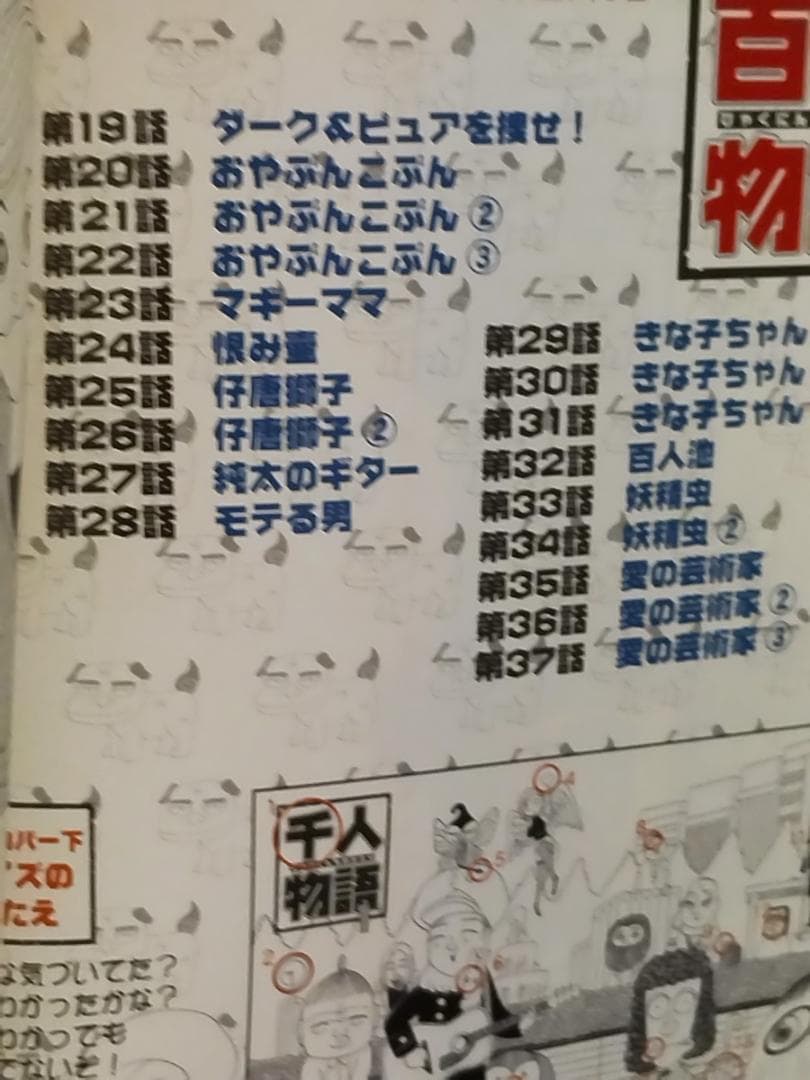 百
物
第19話 ダーク&ピュアを捜せ!
第20話 おやぶんこぶん
第21話 おやぶんこぶん②
第22話 おやぶんこぶん③
第23話 マギーママ
第24話 恨み壷
第25話 仔唐獅子
第26話 仔唐獅子②
第27話 純太のギター
第28話 モテる男
第29話 きな子ちゃん
第30話 きな子ちゃん
第31話 きな子ちゃん
第32話 百人池
第33話 妖精虫
第34話 妖精虫②
第35話 愛の芸術家
第36話 愛の芸術家②
第37話 愛の芸術家③
千人
物語
バー下
ズの
たえ
な気づいてた?
わかったかな?
わかっても
でないぞ!
2
4
5
6